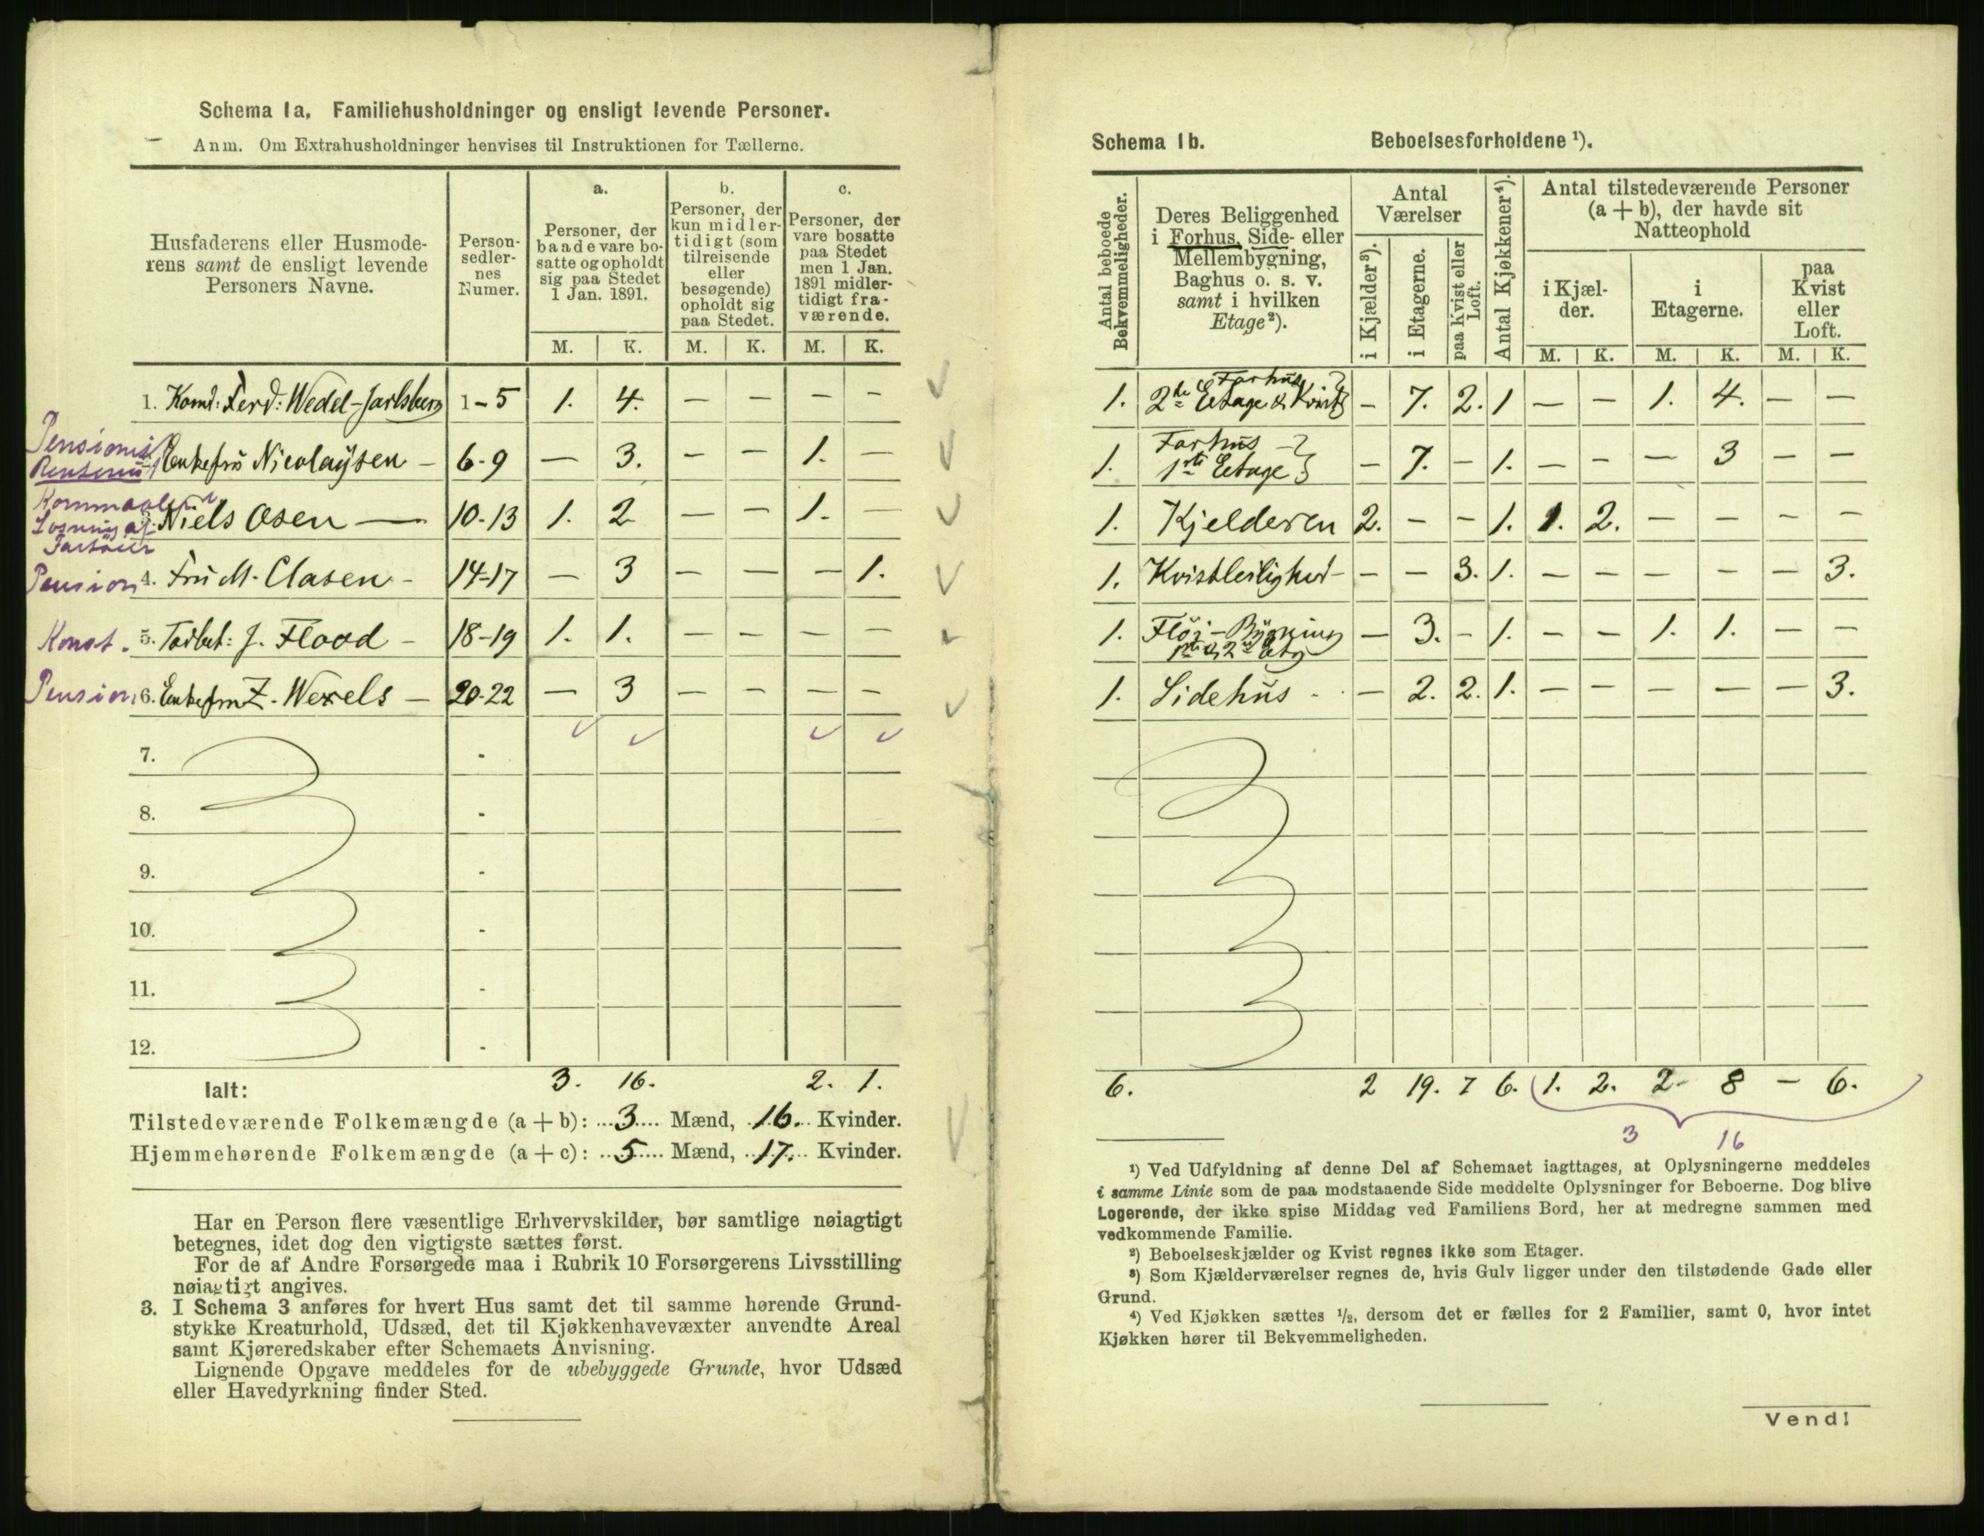 Schema 1a. Familiehusholdninger og ensligt levende Personer.
Anm. Om Extrahusholdninger henvises til Instruktionen for Tællerne.
Husfaderens eller Husmode-
rens samt de ensligt levende
Personers Navne.
Person-
sedler-
nes
Numer.
a.
Personer, der
baade vare bo-
satte og opholdt
sig paa Stedet
1 Jan. 1891.
b.
Personer, der
kun midler-
tidigt (som
tilreisende
eller
besøgende)
opholdt sig
paa Stedet.
c.
Personer, der
vare bosatte
paa Stedet
men 1 Jan.
1891 midler-
tidigt fra-
værende.
M. K. M. K. M. K.
1. Komd: Ferd: Wedel-Jarlsberg 1-5 1. 4. — — — —
Pensionist
Enkefrü Nicolaÿsen — 6-9 — 3. — — 1. —
3. Niels Osen — 10-13 1. 2 — — 1. —
Pension 4. Frü M. Clasen - 14-17 — 3 — — — 1.
Konst. 5. J. Flood - 18-19 1. 1. — — — —
Pension 6. Enkefrü Z. Wexels — 20-22 — 3 — — — —
7. -
8. -
9. -
10. -
11. -
12. -
Ialt: 3. 16. 2. 1.
Tilstedeværende Folkemængde (a + b): 3 Mænd, 16. Kvinder.
Hjemmehørende Folkemængde (a + c): 5 Mænd, 17. Kvinder.
Har en Person flere væsentlige Erhvervskilder, bør samtlige nøiagtigt
betegnes, idet dog den vigtigste sættes først.
For de af Andre Forsørgede maa i Rubrik 10 Forsørgerens Livsstilling
nøiagtigt angives.
3. I Schema 3 anføres for hvert Hus samt det til samme hørende Grund-
stykke Kreaturhold, Udsæd, det til Kjøkkenhavevæxter anvendte Areal
samt Kjøreredskaber efter Schemaets Anvisning.
Lignende Opgave meddeles for de ubebyggede Grunde, hvor Udsæd
eller Havedyrkning finder Sted.
Schema 1b. Beboelsesforholdene ¹).
Antal beboede
Bekvemmeligheder.
Deres Beliggenhed
i Forhus, Side- eller
Mellembygning,
Baghus o. s. v.
samt i hvilken
Etage²).
Antal
Værelser
i Kjælder³).
i Etagerne.
paa Kvist eller
Loft.
Antal Kjøkkener⁴).
Antal tilstedeværende Personer
(a + b), der havde sit
Natteophold
i Kjæl-
der.
i
Etagerne.
paa
Kvist
eller
Loft.
M. K. M. K. M. K.
Forhüs
1. 2den Etage & Kvist — 7. 2. 1 — — 1. 4. — —
Forhüs
1. 1ste Etage — 7. — 1. — — — 3 — —
1. Kjelderen 2. — — 1. 1. 2. — — — —
1. Kvistleilighed — — 3. 1. — — — — — 3.
1. Fløi-Bÿgning — 3. — 1. — — 1. 1. — —
1ste & 2den Etg
1. Sidehüs - — 2. 2. 1. — — — — — 3.
6. 2 19. 7 6. 1. 2. 2. 8 — 6.
3 16
¹) Ved Udfyldning af denne Del af Schemaet iagttages, at Oplysningerne meddeles
i samme Linie som de paa modstaaende Side meddelte Oplysninger for Beboerne. Dog blive
Logerende, der ikke spise Middag ved Familiens Bord, her at medregne sammen med
vedkommende Familie.
²) Beboelseskjælder og Kvist regnes ikke som Etager.
³) Som Kjælderværelser regnes de, hvis Gulv ligger under den tilstødende Gade eller
Grund.
⁴) Ved Kjøkken sættes ½, dersom det er fælles for 2 Familier, samt 0, hvor intet
Kjøkken hører til Bekvemmeligheden.
Vend!